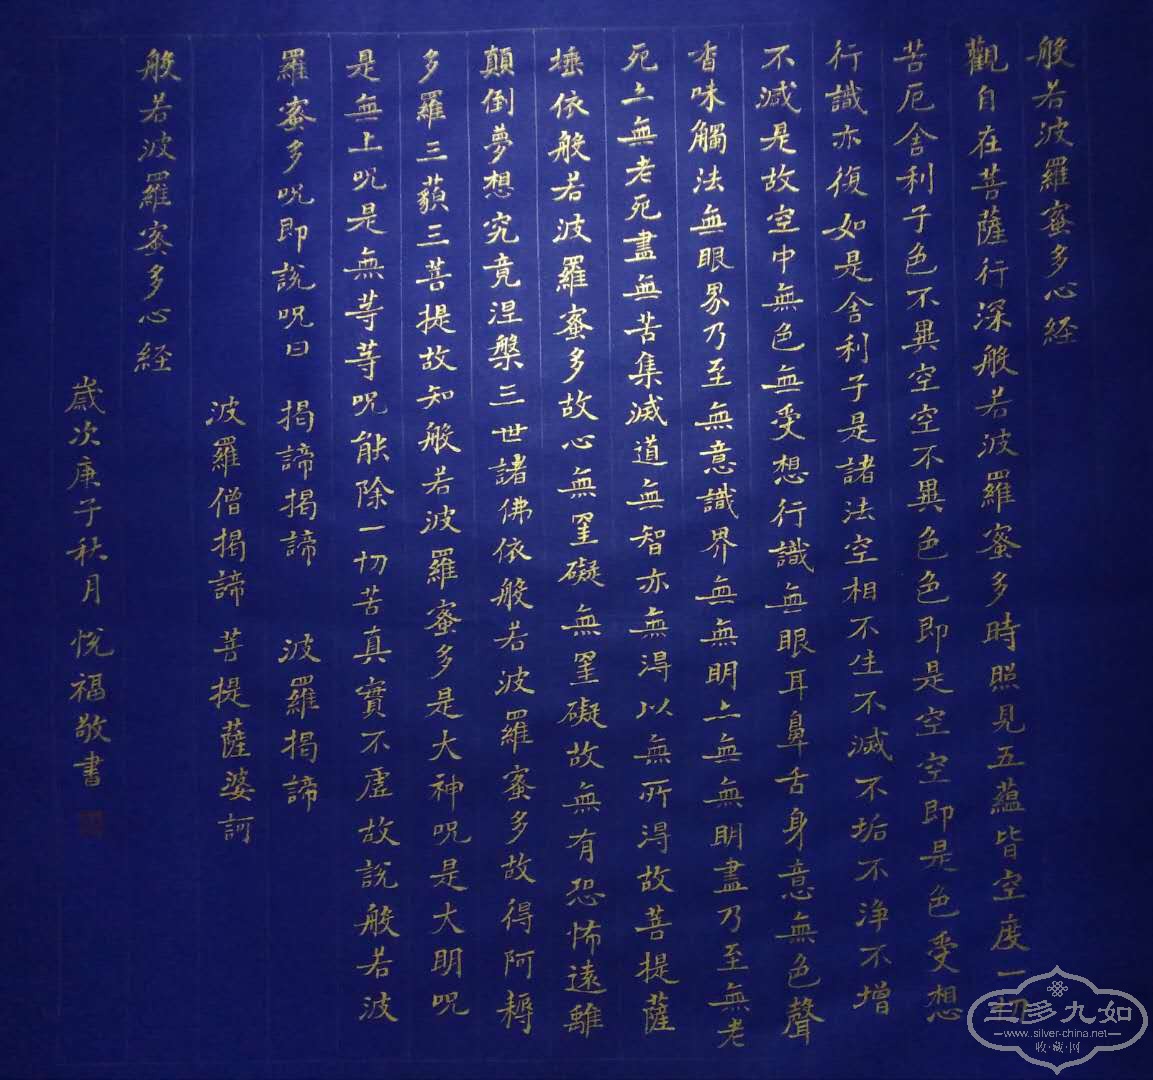 般若波羅蜜多心経
觀自在菩薩行深般若波羅蜜多時照見五蘊皆空度一切
苦厄舍利子色不異空空不異色色即是空空即是色受想
行識亦復如是舍利子是諸法空相不生不滅不垢不淨不增
不減是故空中無色無受想行識無眼耳鼻舌身意無色聲
香味觸法無眼界乃至無意識界無無明亦無無明盡乃至無老
死亦無老死盡無苦集滅道無智亦無得以無所得故菩提薩
埵依般若波羅蜜多故心無罣礙無罣礙故無有恐怖遠離
顛倒夢想究竟涅槃三世諸佛依般若波羅蜜多故得阿耨
多羅三藐三菩提故知般若波羅蜜多是大神咒是大明咒
是無上咒是無等等咒能除一切苦真實不虛故說般若波
羅蜜多咒即說咒曰 揭諦揭諦 波羅揭諦
波羅僧揭諦 菩提薩婆訶
般若波羅蜜多心経
歲次庚子秋月悅福敬書
三多九如
www.silver-china.net
收·藏·网